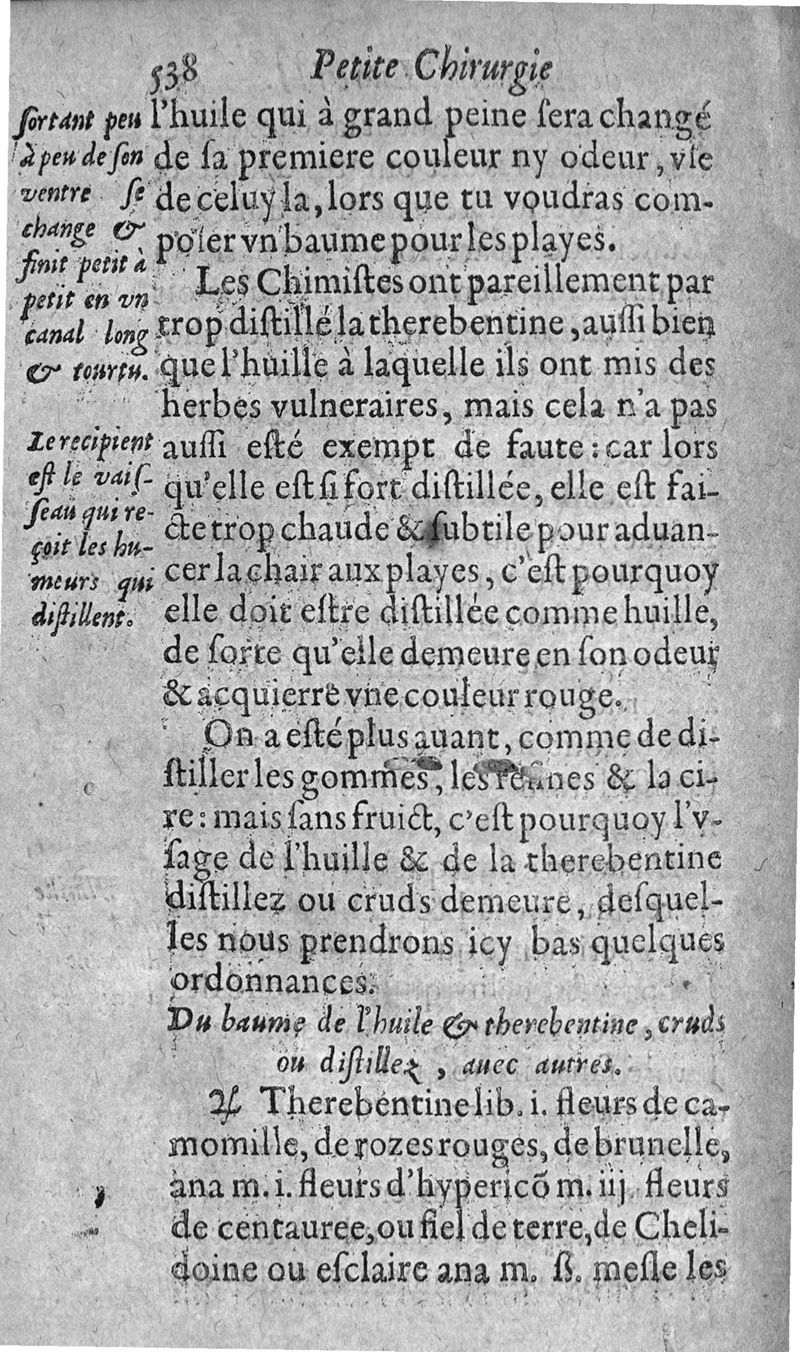 538 Petite Chirurgie
ſortant peu
à peu de ſon
ventre ſe
change &
finit petit à
petit en vn
canal long
& tourtu.
Le recipient
eſt le vaiſ-
ſeau qui re-
çoit les hu-
meurs qui
diſtillent.
l'huile qui à grand peine ſera changé
de ſa premiere couleur ny odeur, vſe
de celuy la, lors que tu voudras com-
poſer vn baume pour les playes.
Les Chimiſtes ont pareillement par
trop diſtillé la therebentine, auſſi bien
que l'huille à laquelle ils ont mis des
herbes vulneraires, mais cela n'a pas
auſſi eſté exempt de faute : car lors
qu'elle eſt ſi fort diſtillée, elle eſt fai-
cte trop chaude & ſubtile pour aduan-
cer la chair aux playes, c'eſt pourquoy
elle doit eſtre diſtillée comme huille,
de ſorte qu'elle demeure en ſon odeur
& acquierre vne couleur rouge.
On a eſté plus auant, comme de di-
ſtiller les gommes, les reſines & la ci-
re : mais ſans fruict, c'eſt pourquoy l'v-
ſage de l'huille & de la therebentine
diſtillez ou cruds demeure, deſquel-
les nous prendrons icy bas quelques
ordonnances.
Du baume de l'huile & therebentine, cruds
ou diſtillez, auec autres.
♃ Therebentine lib. i. fleurs de ca-
momille, de rozes rouges, de brunelle,
ana m. i. fleurs d'hypericõ m. iij. fleurs
de centauree, ou fiel de terre, de Cheli-
doine ou eſclaire ana m. ß. meſle les